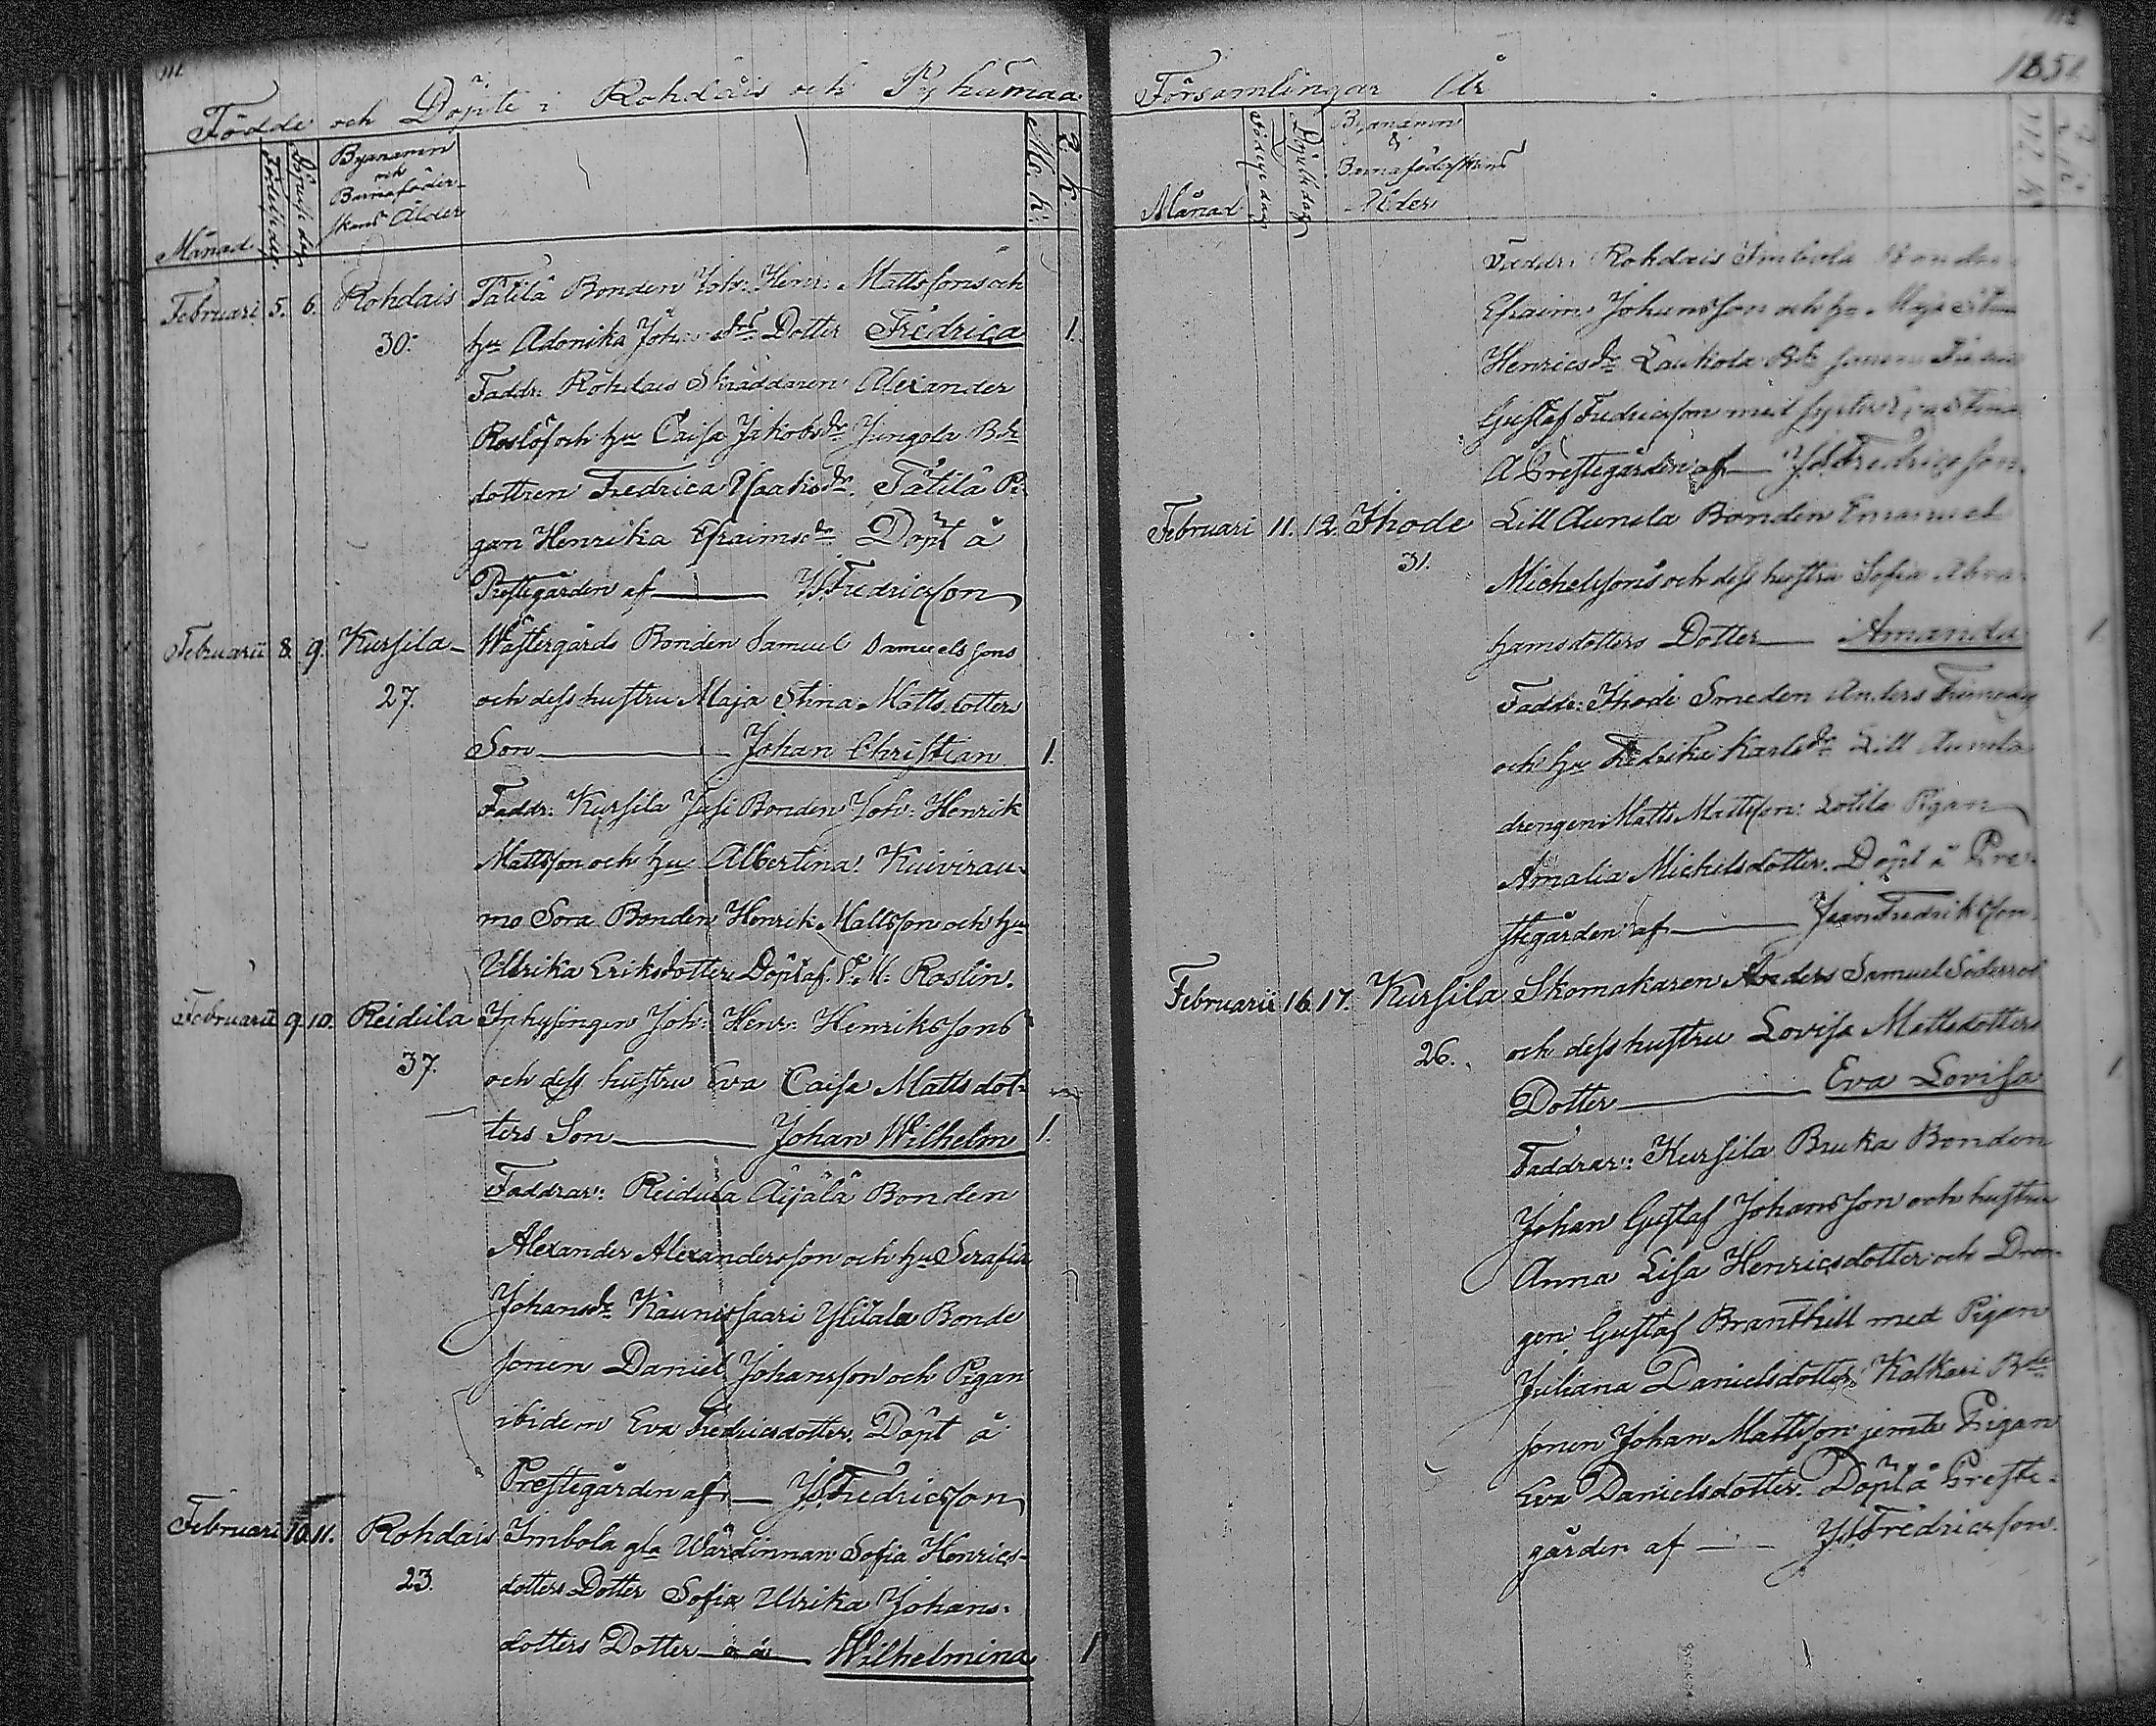 Födde och Döpte i Rohdais och Pyhämaa
Månad
Födelsedag
Döpelsedag
Byanamn
och
Barnaföder-
skans Ålder
M. k.
Q. k.
Februari 5. 6. Rohdais Tätilä Bonden Joh: Henr: Mattssons och
30. hu Adonika Dotter Fredrica 1.
Faddr. Rohdais Skräddaren Alexander
Roslöf och hu Caisa Jakobsdr Jungola Bde
dottren Fredrica Isaksdr. Tätilä Pi-
gan Henrika Efraimsdr. Döpt å
Prestegården af Fredricsson
Februarii 8. 9. Kursila Wästergårds Bonden Samuel Samuelssons
27. och dess hustru Maja Stina Mattsdotters
Son Johan Christian 1.
Faddr: Kursila Jusi Bonden Joh: Henrik
Mattsson och hu Albertina. Kuivirau-
mo Sora Bonden Henrik Mattsson och hu
Ulrika Eriksdotter Döpt af Roslin.
Februarii 9. 10. Reidila Inhysingen Joh: Henr: Henrikssons
37. och dess hustru Eva Caisa Mattsdot-
ters Son Johan Wilhelm 1.
Faddrar: Reidila Äijälä Bonden
Alexander Alexandersson och hu Serafia
Johansdr Kaunissaari Ylitalo Bonde
sonen Daniel Johansson och Pigan
ibidem Eva Fredricsdotter. Döpt å
Prestegården af Fredricsson
Februari 10. 11. Rohdais Imbola gla Wärdinnan Sofia Henrics-
23. dotters Dotter Sofia Ulrika Johans-
dotters Dotter o ä Wilhelmina 1
Församlingar År 1851.
Månad
Födelse dag
Döpelse dag
Byanamn
&
Barnaföderskans
Ålder
Faddr: Rohdais Imbola Bonden
Efraim Johansson och hu Maja Stina
Henricsdr Laukola Bde sonen
Gustaf Fredricsson med syster
å Prestegården af Fredricsson.
Februari 11. 12. Ihode Lill Aunela Bonden Emanuel
31. Michelssons och dess hustru Sofia Abra-
hamsdotters Dotter Amanda 1.
Faddr: Ihode Smeden Anders
och hu Fredrika Karlsdr Lill Aunela
drengen Matts Mattsson: Lotila Pigan
Amalia Michelsdotter. Döpt å Pre-
stegården af Fredriksson.
Februarii 16. 17. Kursila Skomakaren Anders Samuel
26. och dess hustru Lovisa Mattsdotters
Dotter Eva Lovisa 1
Faddrar: Kursila Bruka Bonden
Johan Gustaf Johansson och hustru
Anna Lisa Henricsdotter och Dren-
gen Gustaf Branthill med Pigan
Juliana Danielsdotter. Kalkari Bde
sonen Johan Mattsson jemte Pigan
Eva Danielsdotter. Döpt å Preste-
gården af Fredricsson.